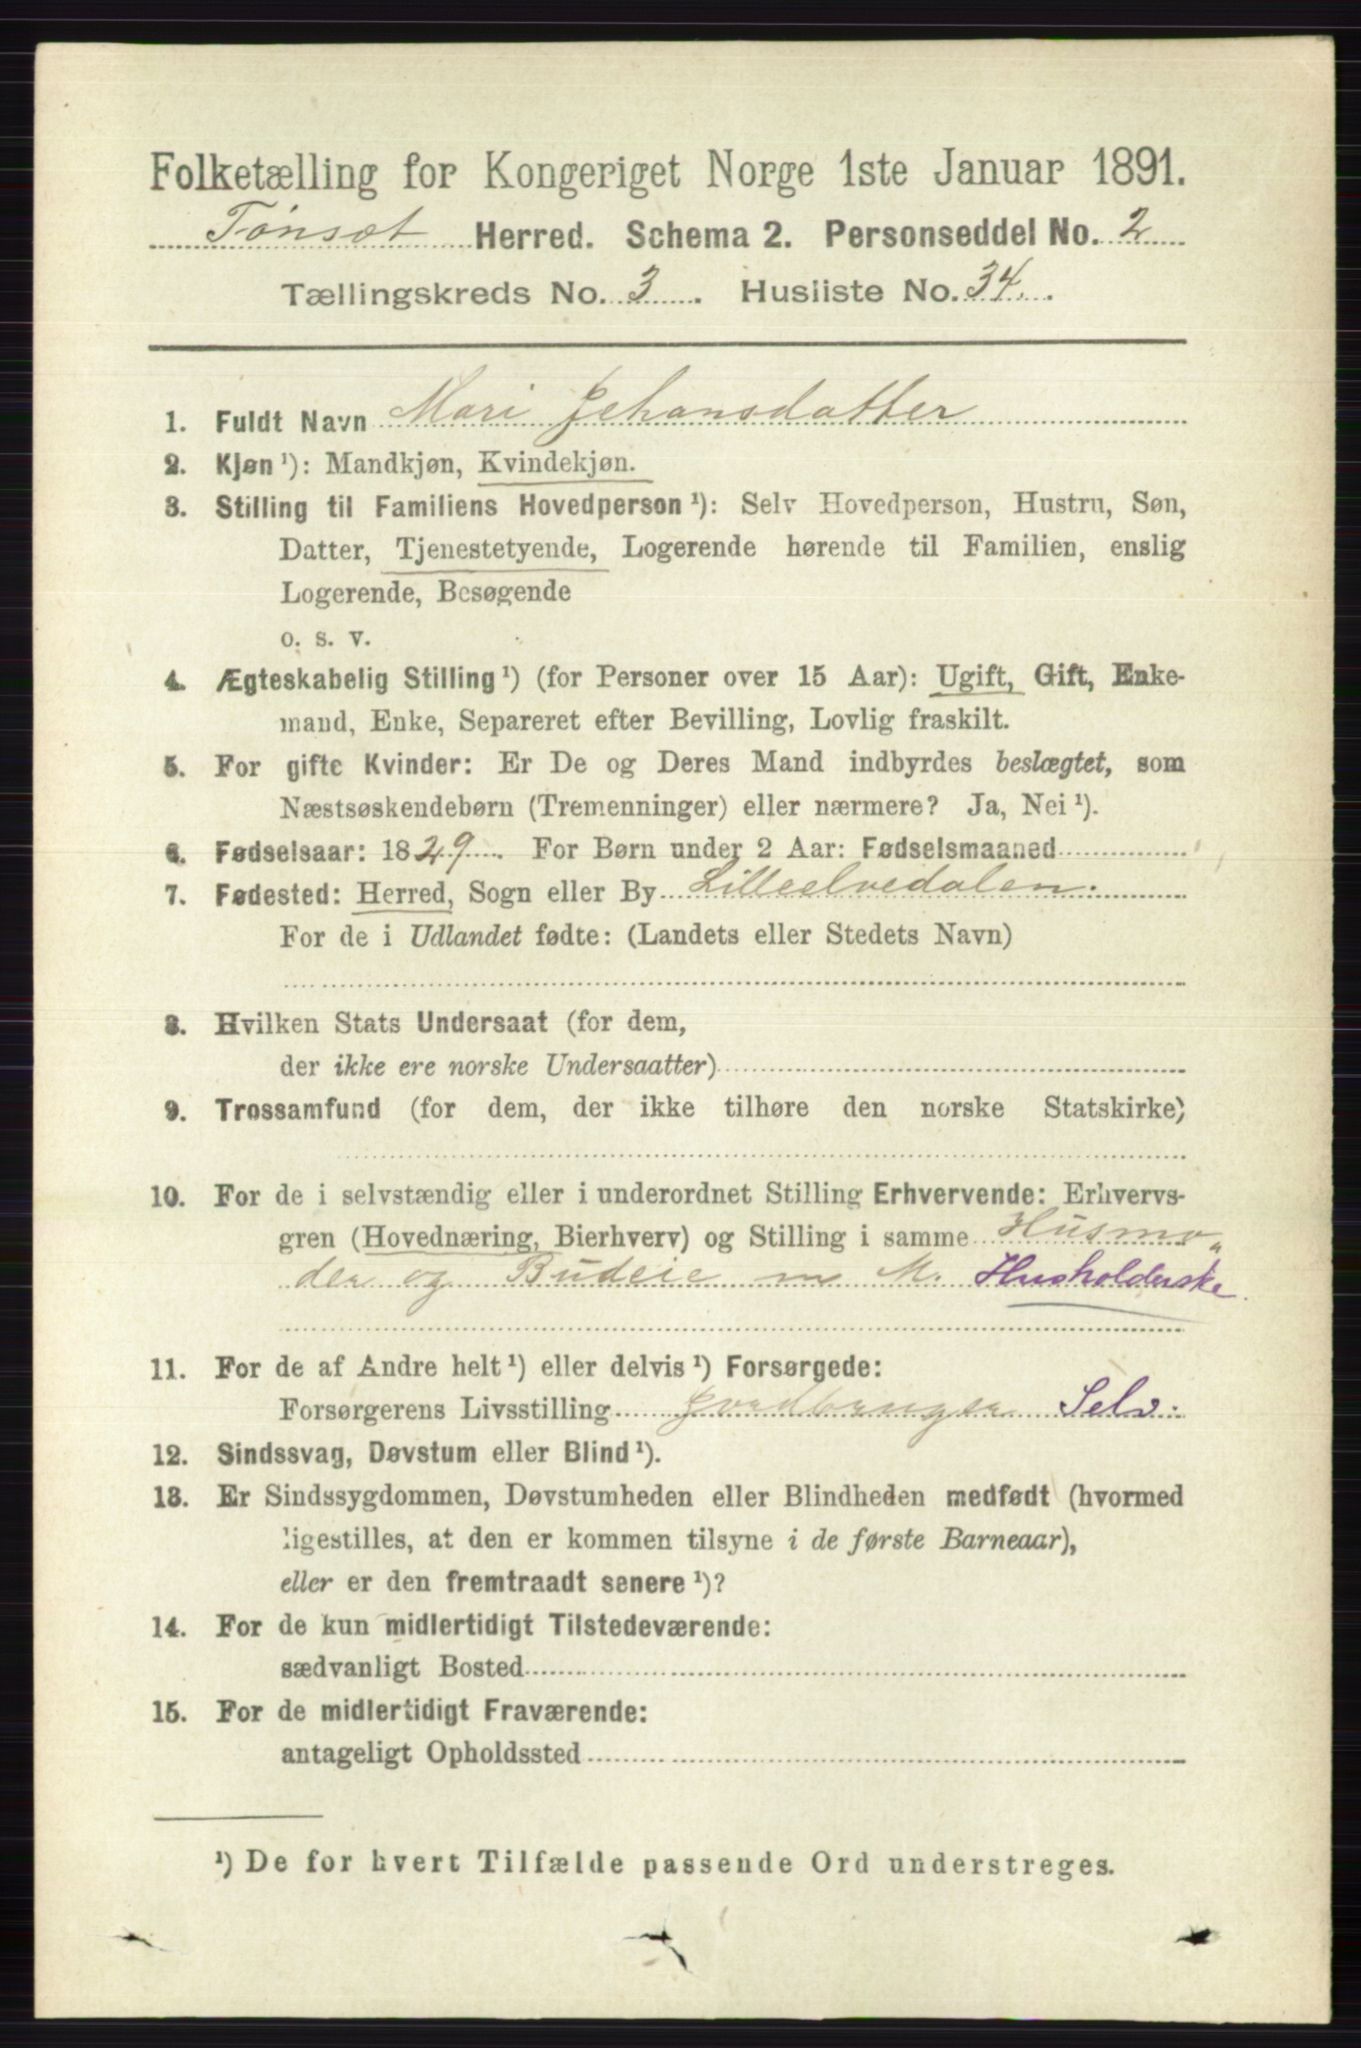 Folketælling for Kongeriget Norge 1ste Januar 1891.
Tønset Herred. Schema 2. Personseddel No. 2
Tællingskreds No. 3. Husliste No. 34.
1. Fuldt Navn Mari Johansdatter
2. Kjøn ¹): Mandkjøn, Kvindekjøn.
3. Stilling til Familiens Hovedperson ¹): Selv Hovedperson, Hustru, Søn,
Datter, Tjenestetyende, Logerende hørende til Familien, enslig
Logerende, Besøgende
o. s. v.
4. Ægteskabelig Stilling ¹) (for Personer over 15 Aar): Ugift, Gift, Enke-
mand, Enke, Separeret efter Bevilling, Lovlig fraskilt.
5. For gifte Kvinder: Er De og Deres Mand indbyrdes beslægtet, som
Næstsøskendebørn (Tremenninger) eller nærmere? Ja, Nei ¹).
6. Fødselsaar: 1829. For Børn under 2 Aar: Fødselsmaaned
7. Fødested: Herred, Sogn eller By Lilleelvedalen.
For de i Udlandet fødte: (Landets eller Stedets Navn)
8. Hvilken Stats Undersaat (for dem,
der ikke ere norske Undersaatter)
9. Trossamfund (for dem, der ikke tilhøre den norske Statskirke)
10. For de i selvstændig eller i underordnet Stilling Erhvervende: Erhvervs-
gren (Hovednæring, Bierhverv) og Stilling i samme Husmo"
der og Budeie m M. Husholderske.
11. For de af Andre helt ¹) eller delvis ¹) Forsørgede:
Forsørgerens Livsstilling Jordbruger Selv.
12. Sindssvag, Døvstum eller Blind ¹).
13. Er Sindssygdommen, Døvstumheden eller Blindheden medfødt (hvormed
ligestilles, at den er kommen tilsyne i de første Barneaar),
eller er den fremtraadt senere ¹)?
14. For de kun midlertidigt Tilstedeværende:
sædvanligt Bosted
15. For de midlertidigt Fraværende:
antageligt Opholdssted
¹) De for hvert Tilfælde passende Ord understreges.